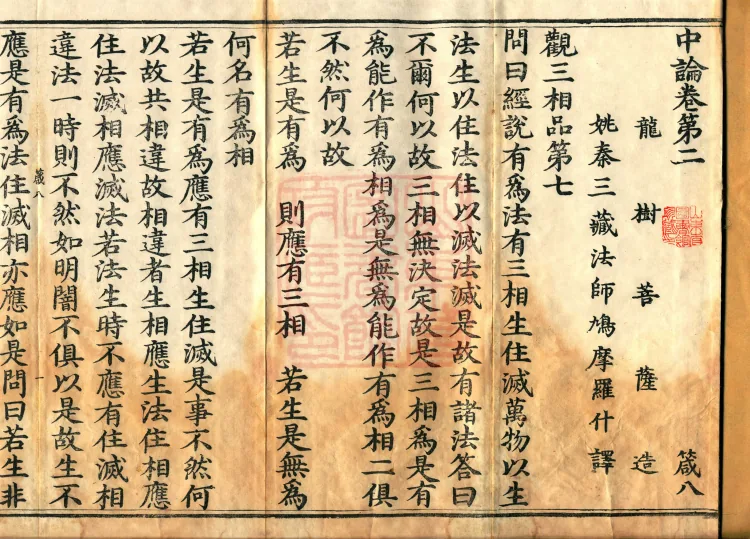 中論卷第二 箴八
龍樹菩薩造
姚秦三藏法師鳩摩羅什譯
觀三相品第七
問曰經說有爲法有三相生住滅萬物以生
法生以住法住以滅法滅是故有諸法答曰
不爾何以故三相無決定故是三相爲是有
爲能作有爲相爲是無爲能作有爲相二俱
不然何以故
若生是有爲 則應有三相 若生是無爲
何名有爲相
若生是有爲應有三相生住滅是事不然何
以故共相違故相違者生相應生法住相應
住法滅相應滅法若法生時不應有住滅相
違法一時則不然如明闇不俱以是故生不
箴八 一
應是有爲法住滅相亦應如是問曰若生非